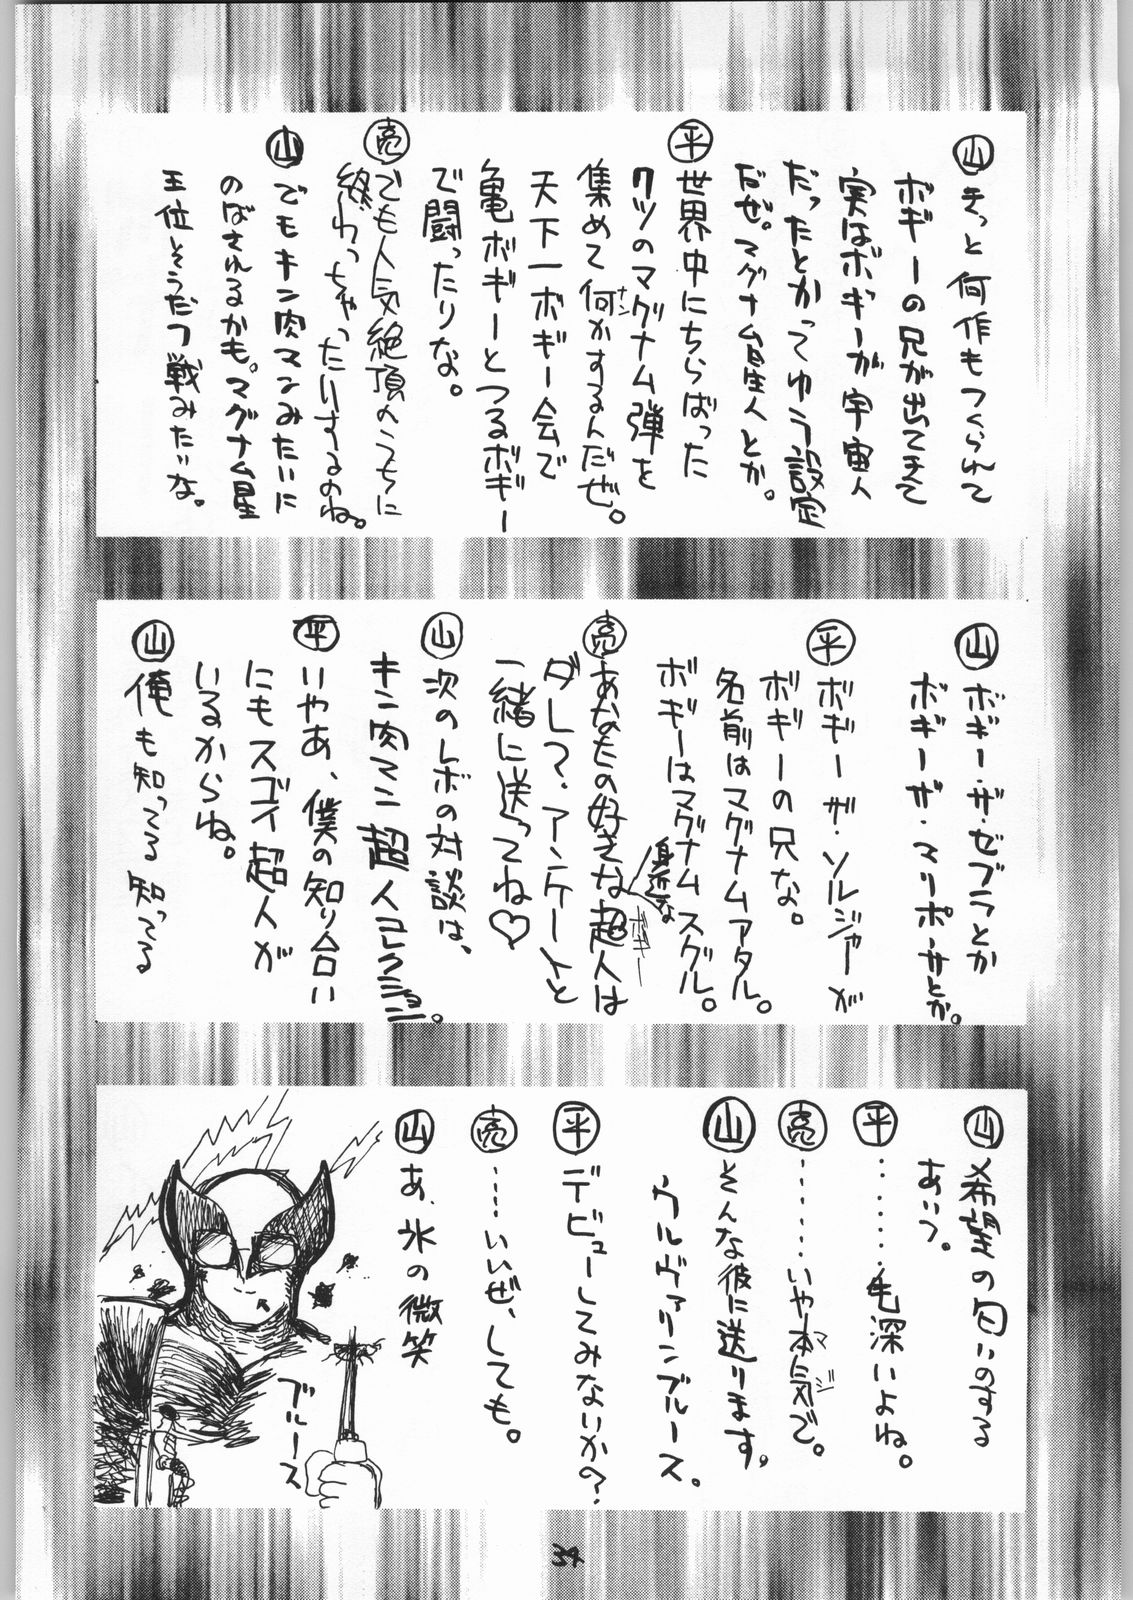 山 きっと何作もつくられて
ボギーの兄が出てきて
実はボギーが宇宙人
だったとかってゆう設定
だぜ。マグナム星人とか。
平 世界中にちらばった
7ツのマグナム弾を
集めて何かするんだぜ。
ナン
天下一ボギー会で
亀ボギーとつるボギー
で闘ったりな。
亮 でも人気絶頂のうちに
終わっちゃったりするのね。
山 でもキン肉マンみたいに
のばされるかも。マグナム星
王位そうだつ戦みたいな。
山 ボギー・ザ・ゼブラとか
ボギー・ザ・マリポーサとか。
平 ボギー・ザ・ソルジャーが
ボギーの兄な。
名前はマグナムアタル。
ボギーはマグナムスグル。
亮 あなたの好きな超人は
身近な
ボギー
ダレ?アンケートと
一緒に送ってね♡
山 次のレボの対談は、
キン肉マン超人コレクション。
平 いやあ、僕の知り合い
にもスゴイ超人が
いるからね。
山 俺も知ってる知ってる
山 希望の匂いのする
あいつ。
平 ………毛深いよね。
亮 ………いや本気で。
マジ
山 そんな彼に送ります。
ウルヴァリンブルース。
平 デビューしてみないか?
亮 ……いいぜ、しても。
山 あ、氷の微笑
ブルース
34